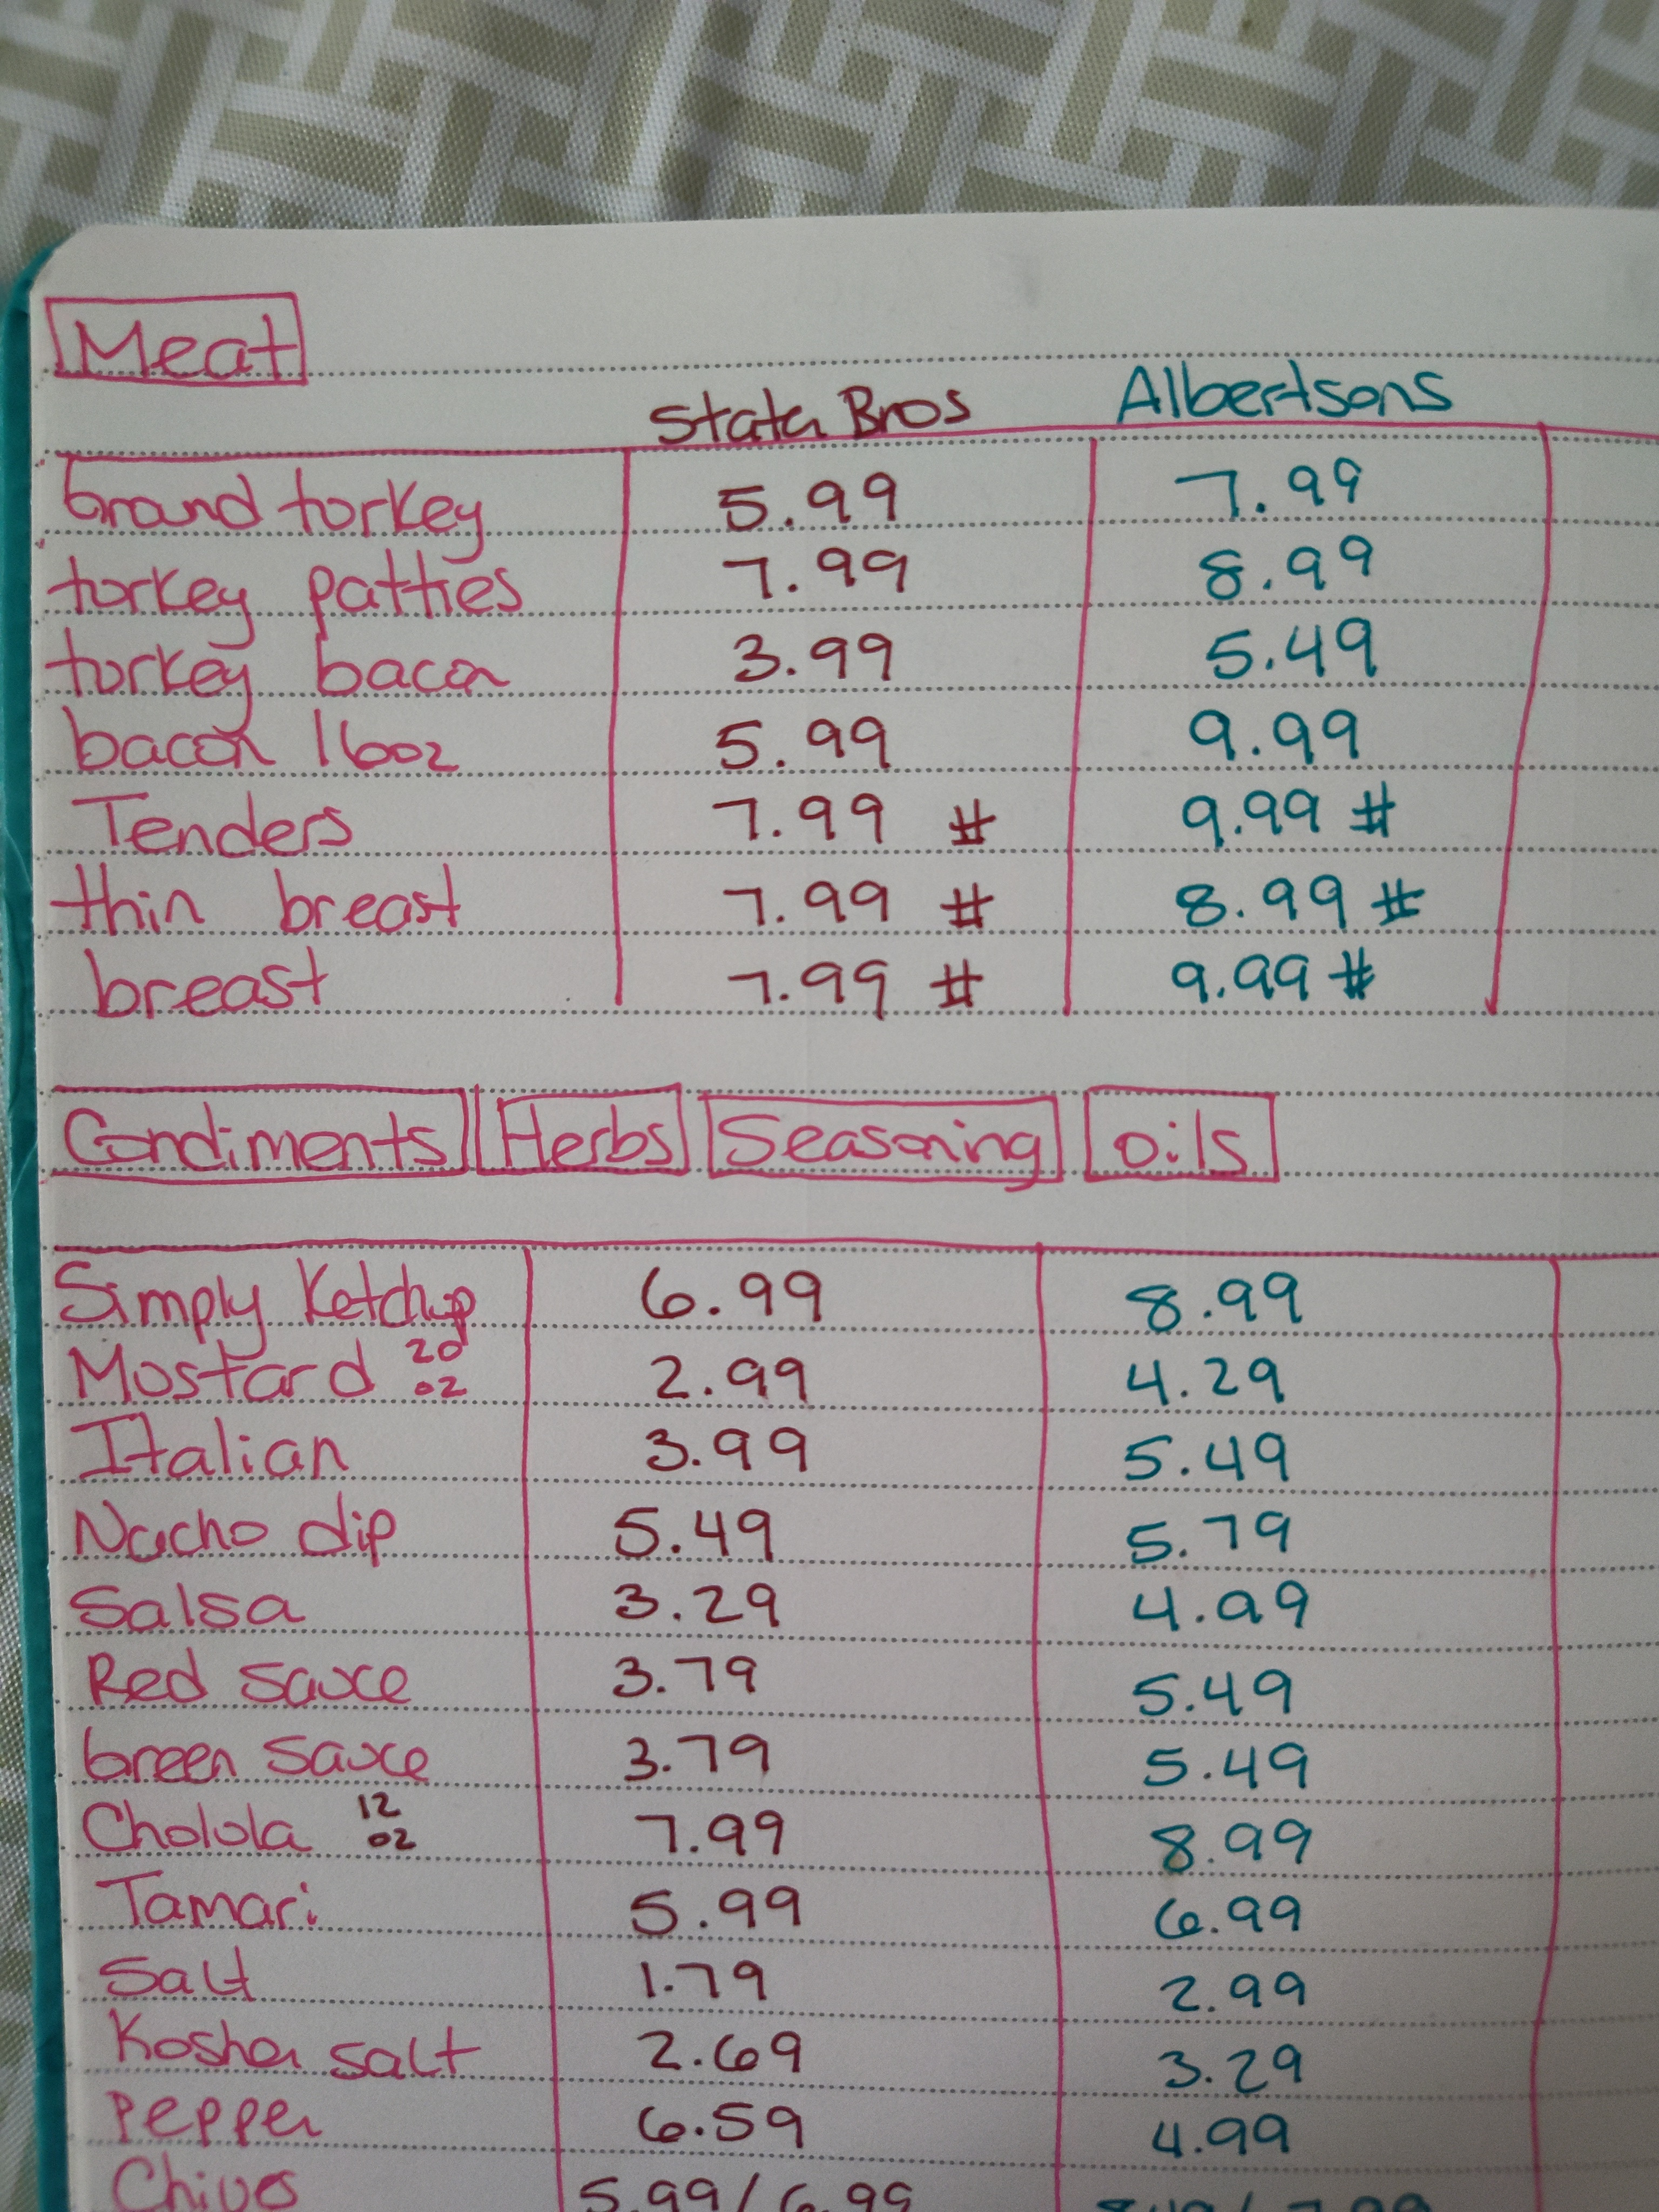 Meat
Stater Bros Albertsons
Ground turkey 5.99 7.99
turkey patties 7.99 8.99
turkey bacon 3.99 5.49
bacon 16oz 5.99 9.99
Tenders 7.99 # 9.99 #
thin breast 7.99 # 8.99 #
breast 7.99 # 9.99 #
Condiments Herbs Seasoning oils
Simply Ketchup 6.99 8.99
Mustard 20 oz 2.99 4.29
Italian 3.99 5.49
Nacho dip 5.49 5.79
Salsa 3.29 4.99
Red sauce 3.79 5.49
Green sauce 3.79 5.49
Cholula 12 oz 7.99 8.99
Tamari 5.99 6.99
Salt 1.79 2.99
Kosher salt 2.69 3.29
Pepper 6.59 4.99
Chives 5.99 / 6.99